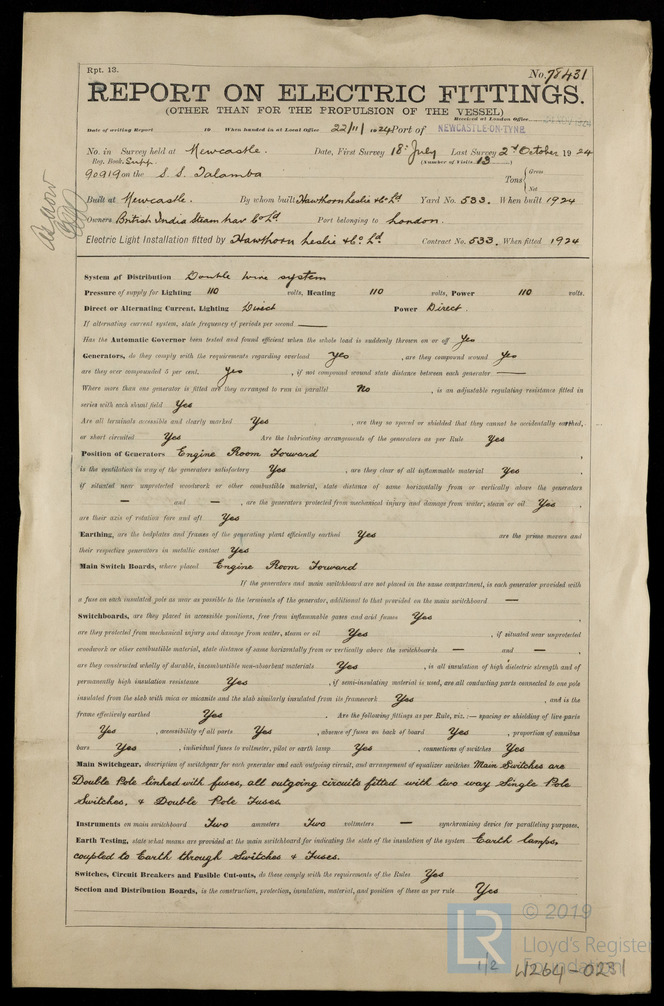 Rpt. 13.
No. 78431
REPORT ON ELECTRIC FITTINGS.
(OTHER THAN FOR THE PROPULSION OF THE VESSEL)
Received at London Office
Date of writing Report 19 When handed in at Local Office 22/11/1924 Port of NEWCASTLE-ON-TYNE
No. in Survey held at Newcastle. Date, First Survey 18th July Last Survey 2nd October 1924
Reg. Book. Supp. (Number of Visits 13)
90919 on the S. S. Talamba Tons { Gross Net
Built at Newcastle. By whom built Hawthorn Leslie & Co Ld Yard No. 533. When built 1924
Owners British India Steam Nav Co Ld Port belonging to London.
Electric Light Installation fitted by Hawthorn Leslie & Co. Ld. Contract No. 533. When fitted 1924
System of Distribution Double wire system
Pressure of supply for Lighting 110 volts, Heating 110 volts, Power 110 volts.
Direct or Alternating Current, Lighting Direct Power Direct.
If alternating current system, state frequency of periods per second —
Has the Automatic Governor been tested and found efficient when the whole load is suddenly thrown on or off Yes
Generators, do they comply with the requirements regarding overload Yes, are they compound wound Yes
are they over compounded 5 per cent. Yes, if not compound wound state distance between each generator —
Where more than one generator is fitted are they arranged to run in parallel No, is an adjustable regulating resistance fitted in
series with each shunt field Yes
Are all terminals accessible and clearly marked Yes, are they so spaced or shielded that they cannot be accidentally earthed,
or short circuited Yes Are the lubricating arrangements of the generators as per Rule Yes
Position of Generators Engine Room Forward
is the ventilation in way of the generators satisfactory Yes, are they clear of all inflammable material Yes,
if situated near unprotected woodwork or other combustible material, state distance of same horizontally from or vertically above the generators
— and —, are the generators protected from mechanical injury and damage from water, steam or oil Yes,
are their axis of rotation fore and aft Yes
Earthing, are the bedplates and frames of the generating plant efficiently earthed Yes are the prime movers and
their respective generators in metallic contact Yes
Main Switch Boards, where placed Engine Room Forward
If the generators and main switchboard are not placed in the same compartment, is each generator provided with
a fuse on each insulated pole as near as possible to the terminals of the generator, additional to that provided on the main switchboard —
Switchboards, are they placed in accessible positions, free from inflammable gases and acid fumes Yes
are they protected from mechanical injury and damage from water, steam or oil Yes, if situated near unprotected
woodwork or other combustible material, state distance of same horizontally from or vertically above the switchboards — and —,
are they constructed wholly of durable, incombustible non-absorbent materials Yes, is all insulation of high dielectric strength and of
permanently high insulation resistance Yes, if semi-insulating material is used, are all conducting parts connected to one pole
insulated from the slab with mica or micanite and the slab similarly insulated from its framework Yes, and is the
frame effectively earthed Yes. Are the following fittings as per Rule, viz. :— spacing or shielding of live parts
Yes, accessibility of all parts Yes, absence of fuses on back of board Yes, proportion of omnibus
bars Yes, individual fuses to voltmeter, pilot or earth lamp Yes, connections of switches Yes
Main Switchgear, description of switchgear for each generator and each outgoing circuit, and arrangement of equalizer switches Main Switches are
Double Pole linked with fuses, all outgoing circuits fitted with two way Single Pole
Switches, & Double Pole Fuses.
Instruments on main switchboard Two ammeters Two voltmeters — synchronising device for paralleling purposes,
Earth Testing, state what means are provided at the main switchboard for indicating the state of the insulation of the system Earth lamps,
coupled to Earth through Switches & Fuses.
Switches, Circuit Breakers and Fusible Cut-outs, do these comply with the requirements of the Rules Yes
Section and Distribution Boards, is the construction, protection, insulation, material, and position of these as per rule Yes
LR
© 2019
Lloyd's Register
Foundation
1/2 W264-0231